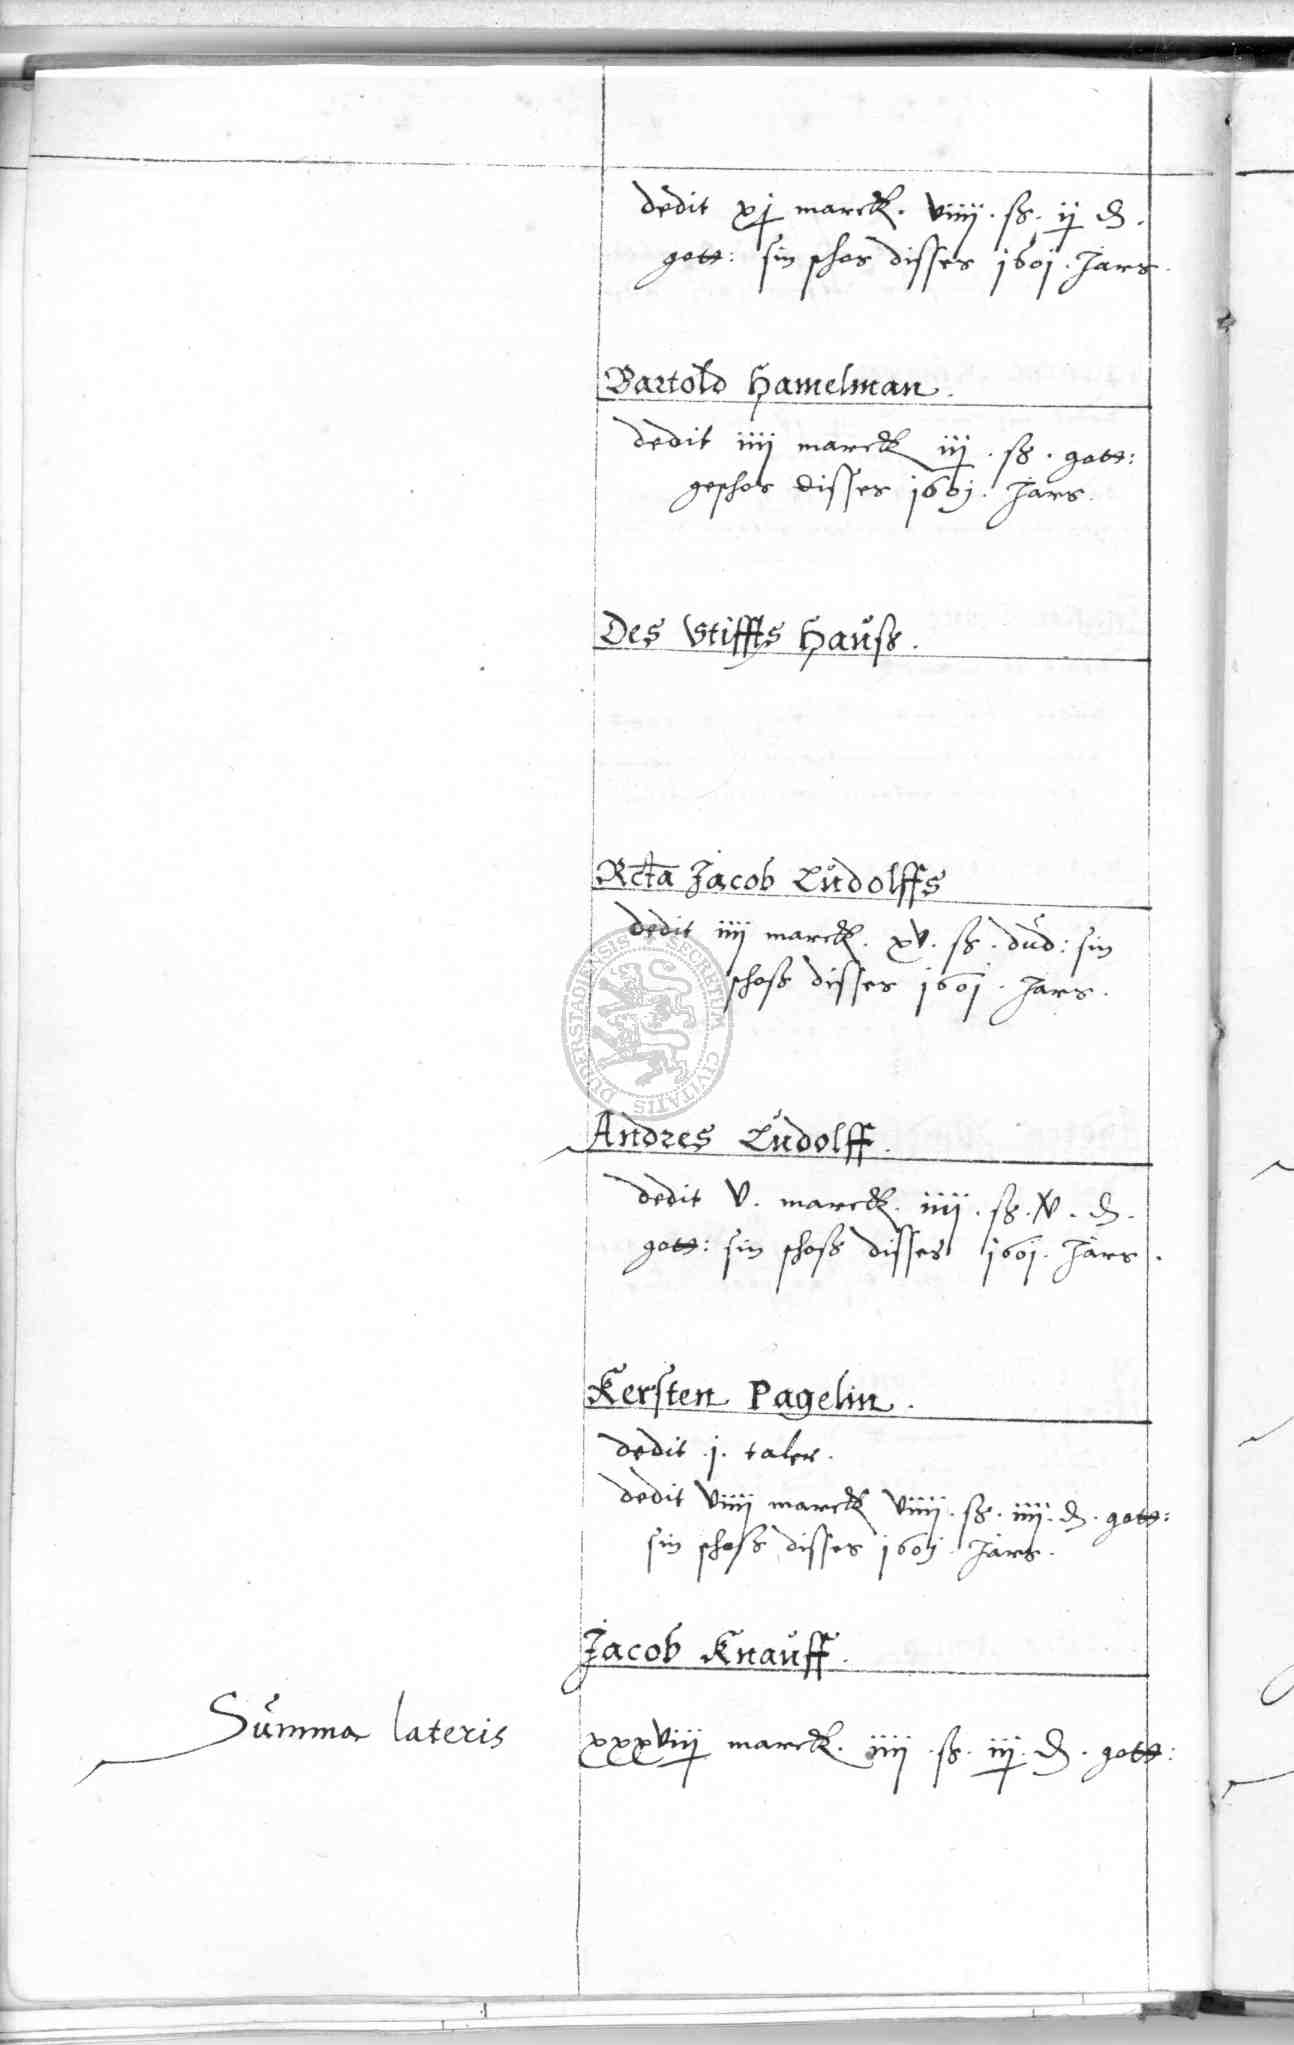 dedit xj marck. viiij. ß. ij ₰.
gott: sin schos disses 1601. Jars.
Bartold Hamelman.
dedit iiij marck iij. ß. gott:
geschos disses 1601. Jars.
Des Stiffts Hauß.
Rcta Jacob Ludolffs
dedit iiij marck. xv. ß. dud: sin
schoß disses 1601. Jars.
Andres Ludolff.
dedit v. marck. iiij. ß. v. ₰.
gott: sin schoß disses 1601. Jars.
Kersten Pagelin.
dedit j. taler.
dedit viiij marck viiij. ß. iiij. ₰. gott:
sin schoß disses 1601. Jars.
Jacob Knauff.
Summa lateris xxxviij marck. iiij. ß. iij. ₰. gott:
SECRETUM CIVITATIS DUDERSTADIENSIS